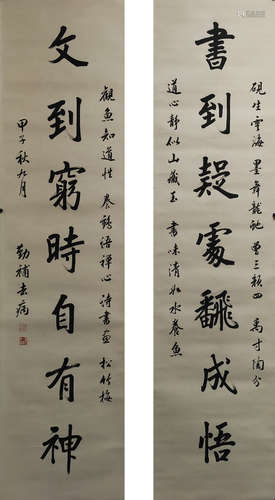 硯生雲海 墨舞龍蛇 曾三顏四 禹寸陶分
書到疑處飜成悟
道心靜似山藏玉 書味清如水養魚
觀魚知道性 養鶴悟禪心 詩書畫 松竹梅
文到窮時自有神
甲子秋九月 勤補去病